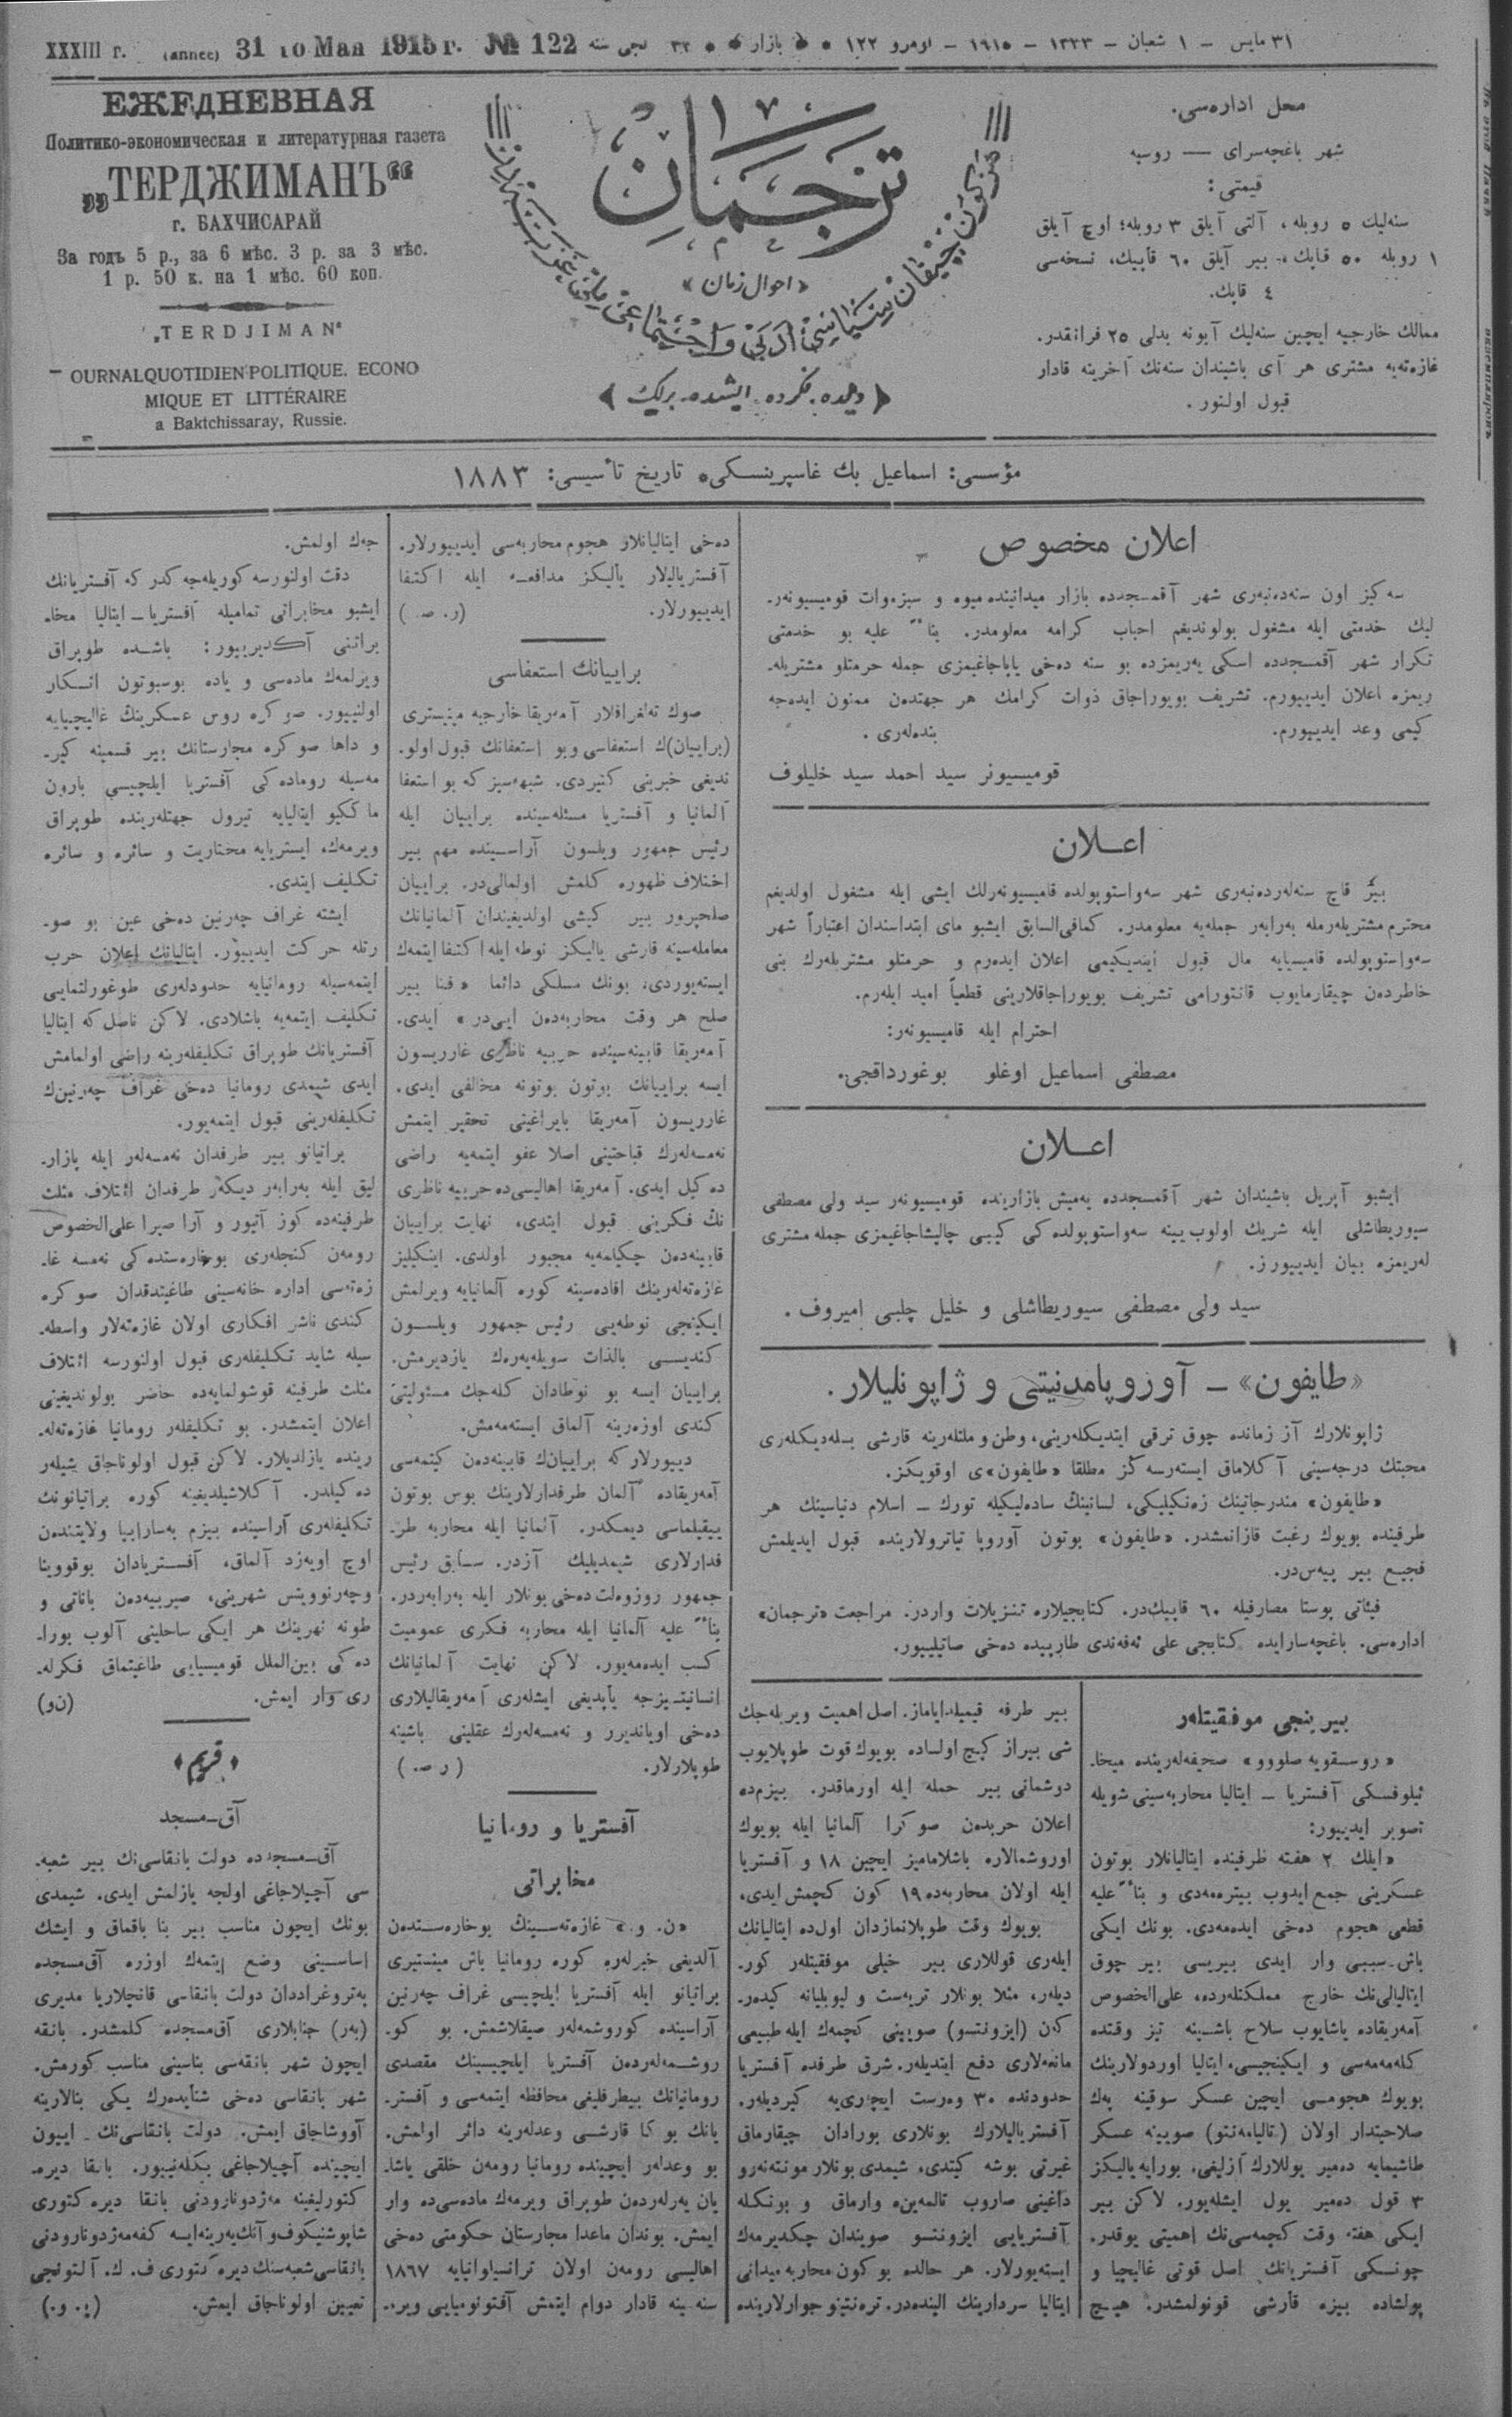 XXXIII г. (annee) 31 го Мая 1915 г. № 122
٣١ مايس – ١ شعبان – ١٣٣٣ – ١٩١٥ – نومرو ١٢٢ • بازار • ٣٢ نجى سنه
ЕЖЕДНЕВНАЯ
Политико-экономическая и литературная газета
„ТЕРДЖИМАНЪ“
г. БАХЧИСАРАЙ
За годъ 5 р., за 6 мѣс. 3 р. за 3 мѣс.
1 р. 50 к. на 1 мѣс. 60 коп.
„TERDJIMAN“
OURNAL QUOTIDIEN POLITIQUE. ECONO
MIQUE ET LITTÉRAIRE
a Baktchissaray, Russie.
ترجمان
«احوال زمان»
﴿ ديلده، فكرده، ايشده، برلك ﴾
محل اداره‌سى.
شهر باغچه‌سراى — روسيه
قيمتى:
سنه‌ليك ٥ روبله، آلتى آيلق ٣ روبله؛ اوچ آيلق
١ روبله ٥٠ قاپك، بير آيلق ٦٠ قاپيك، نسخه‌سى
٤ قاپك.
ممالك خارجيه ايچين سنه‌ليك آبونه بدلى ٢٥ فرانقدر.
غازه‌ته‌يه مشترى هر آى باشيندان سنه‌نك آخرينه قادار
قبول اولنور.
مؤسسى: اسماعيل بك غاسپرينسكى، تاريخ تأسيسى: ١٨٨٣
اعلان مخصوص
سه‌كيز اون سنه‌دنبه‌رى شهر آقمسجدده بازار ميدانينده ميوه و سبزه‌وات قوميسيونه‌ر-
ليك خدمتى ايله مشغول بولونديغم احباب كرامه معلومدر. بناءً عليه بو خدمتى
تكرار شهر آقمسجدده اسكى يه‌ريمزده بو سنه ده‌خى ياپاجاغيمزى جمله حرمتلو مشتريله-
ريمزه اعلان ايدييورم. تشريف بويوراجاق ذوات كرامك هر جهتدن ممنون ايده‌جه
كيمى وعد ايدييورم. بنده‌لرى.
قوميسيونر سيد احمد سيد خليلوف
اعلان
بير قاچ سنه‌لرده‌نبه‌رى شهر سه‌واستوپولده قاميسيونه‌رلك ايشى ايله مشغول اولديغم
محترم مشتريله‌رمله به‌رابه‌ر جمله‌يه معلومدر. كمافى‌السابق ايشبو ماى ابتداسندان اعتباراً شهر
سه‌واستوپولده قاميسيايه مال قبول ايتديكيمى اعلان ايده‌رم و حرمتلو مشتريله‌رك بنى
خاطردن چيقارمايوب قانتورامى تشريف بويوراجاقلارينى قطعياً اميد ايله‌رم.
احترام ايله قاميسيونه‌ر:
مصطفى اسماعيل اوغلو بوغورداقجى.
اعلان
ايشبو آپريل باشيندان شهر آقمسجدده يه‌ميش بازارينده قوميسيونه‌ر سيد ولى مصطفى
سيوريطاشلى ايله شريك اولوب يينه سه‌واستوپولده‌كى كيبى چاليشاجاغيمزى جمله مشترى
له‌ريمزه بيان ايدييورز.
سيد ولى مصطفى سيوريطاشلى و خليل چلبى اميروف.
«طايفون» – آوروپا مدنيتى و ژاپونليلار.
ژاپونلارك آز زمانده چوق ترقى ايتديكله‌رينى، وطن و ملتله‌رينه قارشى بسله‌ديكله‌رى
محبتك درجه‌سينى آكلاماق ايسته‌رسه‌كز مطلقا «طايفون»ى اوقويكز.
«طايفون» مندرجاتينك زه‌نكيليكى، لسانينك ساده‌ليكيله تورك – اسلام دنياسينك هر
طرفينده بويوك رغبت قازانمشدر. «طايفون» بوتون آوروپا تياترولارينده قبول ايديلمش
فجيع بير پيه‌س‌در.
فيئاتى پوستا مصارفيله ٦٠ قاپيك‌در. كتابجيلاره تنزيلات واردر. مراجعت «ترجمان»
اداره‌سى. باغچه‌سارايده كتابجى على ئه‌فه‌ندى طارپيده ده‌خى صاتيلييور.
بيرينجى موفقيتله‌ر
«روسقويه صلووو» صحيفه‌له‌رينده ميخا-
ئيلوفسكى آفستريا – ايتاليا محاربه‌سينى شويله
تصوير ايدييور:
«ايلك ٢ هفته ظرفينده ايتاليانلار بوتون
عسكرينى جمع ايدوب بيتره‌مه‌دى و بناءً عليه
قطعى هجوم ده‌خى ايده‌مه‌دى. بونك ايكى
باش-سببى وار ايدى بيريسى بير چوق
ايتاليالى‌نك خارج مملكتله‌رده، على‌الخصوص
آمه‌ريقاده ياشايوب سلاح باشينه تيز وقتده
كله‌مه‌مه‌سى و ايكينجيسى، ايتاليا اوردولارينك
بويوك هجومى ايچين عسكر سوقينه پك
صلاحيتدار اولان (تاليامه‌نتو) صويينه عسكر
طاشيمايه ده‌مير يوللارك آزليغى. بورايه يالكز
٣ قول ده‌مير يول ايشله‌يور. لاكن بير
ايكى هفته وقت كچمه‌سى‌نك اهميتى يوقدر.
چونكى آفستريانك اصل قوتى غاليچيا و
پولشاده بيزه قارشى قونولمشدر. هيچ
بير طرفه قيميلداياماز. اصل اهميت ويريله‌جك
شى بيراز كيچ اولساده بويوك قوت طوپلايوب
دوشمانى بير حمله ايله اورماقدر. بيزم‌ده
اعلان حربدن صوكرا آلمانيا ايله بويوك
اوروشمالاره باشلاماميز ايچين ١٨ و آفستريا
ايله اولان محاربه‌ده ١٩ كون كچمش ايدى.
بويوك وقت طوپلانمازدان اول‌ده ايتاليانك
ايله‌رى قوللارى بير خيلى موفقيتله‌ر كور-
ديله‌ر، مثلا بونلار تريه‌ست و ليوبليانه كيده‌ر-
كن (ايزونتسو) صويينى كچمك ايله طبيعى
مانعه‌لارى دفع ايتديله‌ر. شرق طرفده آفستريا
حدودنده ٣٠ وه‌رست ايچرى‌يه كيرديله‌ر.
آفستريالیلارك بونلارى بورادان چيقارماق
غيرتى بوشه كيتدى، شيمدى بونلار مونته‌نه‌رو
داغينى صاروب تالمه‌ينه وارماق و بونكله
آفستريايى ايزونتسو صويندان چكديرمك
ايسته‌يورلار. هر حالده بو كون محاربه ميدانى
ايتاليا سردارينك الينده‌در. تره‌نتينو جوارلارينده
ده‌خى ايتاليانلار هجوم محاربه‌سى ايدييورلار.
آفستريالیلار يالیكز مدافعه ايله اكتفا
ايدييورلار. (ر. ص.)
برايیانك استعفاسى
صوك ته‌لغرافلار آمه‌ريقا خارجيه مينيسترى
(برايیان)ك استعفاسى وبو استعفانك قبول اولو-
نديغى خبرينى كتيردى. شبهه‌سيز كه بو استعفا
آلمانيا و آفستريا مسئله‌سينده برايیان ايله
رئيس جمهور ويلسون آراسينده مهم بير
اختلاف ظهوره كلمش اولمالى‌در. برايیان
صلحپرور بير كيشى اولديغيندان آلمانيانك
معامله‌سينه قارشى يالیكز نوطه ايله اكتفا ايتمك
ايسته‌يوردى، بونك مسلكى دائما «فنا بير
صلح هر وقت محاربه‌دن ايى‌در» ايدى.
آمه‌ريقا قابينه‌سينده حربيه ناظرى غارريسون
ايسه برايیانك بوتون بوتونه مخالفى ايدى.
غارريسون آمه‌ريقا بايراغينى تحقير ايتمش
نه‌مسه‌له‌رك قباحتينى اصلا عفو ايتمه‌يه راضى
ده‌كيل ايدى. آمه‌ريقا اهاليسى‌ده حربيه ناظرى
نك فكرينى قبول ايتدى، نهايت برايیان
قابينه‌دن چكيلمه‌يه مجبور اولدى. اينكليز
غازه‌ته‌له‌رينك افاده‌سينه كوره آلمانيايه ويرلمش
ايكينجى نوطه‌يى رئيس جمهور ويلسون
كنديسى بالذات سويله‌يه‌رك يازديرمش.
برايیان ايسه بو نوطادان كله‌جك مسئوليتى
كندى اوزه‌رينه آلماق ايسته‌مه‌مش.
ديیورلار كه برايیان‌ك قابينه‌دن كيتمه‌سى
آمه‌ريقاده آلمان طرفدارلارينك بوس بوتون
ييقيلماسى ديمكدر. آلمانيا ايله محاربه طر-
فدارلارى شيمديليك آزدر. سابق رئيس
جمهور روزوه‌لت ده‌خى بونلار ايله به‌رابه‌ردر.
بناءً عليه آلمانيا ايله محاربه فكرى عموميت
كسب ايده‌مه‌يور. لاكن نهايت آلمانيانك
انسانيتسيزجه ياپديغى ايشله‌رى آمه‌ريقاليلارى
ده‌خى اوياندیرر و نه‌مسه‌له‌رك عقلينى باشينه
طوپلارلار. (ر. ص.)
آفستريا و رومانيا
مخابراتى
«ن. و.» غازه‌ته‌سينك بوخاره‌ستدن
آلديغى خبرله‌ره كوره رومانيا باش مينيستيرى
براتيانو ايله آفستريا ايلچيسى غراف چه‌رنين
آراسينده كوروشمه‌له‌ر صيقلاشمش. بو كو-
روشمه‌له‌ردن آفستريا ايلچيسينك مقصدى
رومانيانك بيطرفليغى محافظه ايتمه‌سى و آفستر-
يانك بوكا قارشى وعدله‌رينه دائر اولمش.
بو وعدله‌ر ايچينده رومانيا رومه‌ن خلقى ياشا-
يان يه‌رله‌ردن طوپراق ويرمك ماده‌سى‌ده وار
ايمش. بوندان ماعدا مجارستان حكومتى ده‌خى
اهاليسى رومه‌ن اولان ترانسيلوانيايه ١٨٦٧
سنه‌سينه قادار دوام ايتمش آفتونوميايى ويره-
جك اولمش.
دقت اولنورسه كوريله‌جه‌كدر كه آفستريانك
ايشبو مخابراتى تماميله آفستريا – ايتاليا مخا-
براتنى آكديريیور: باشده طوپراق
ويرلمك ماده‌سى و ياده بوسبوتون انكار
اولنييور. صوكره روس عسكرينك غاليچيايه
و داها صوكره مجارستانك بير قسمينه كير-
مه‌سيله روماده‌كى آفستريا ايلچيسى بارون
ماككيو ايتاليايه تيرول جهتله‌رينده طوپراق
ويرمك، ايستريايه مختاريت و سائره و سائره
تكليف ايتدى.
ايشته غراف چه‌رنين ده‌خى عين بو صو-
رتله حركت ايدييور. ايتاليانك اعلان حرب
ايتمه‌سيله رومانيايه حدودله‌رى طوغورلتمايى
تكليف ايتمه‌يه باشلادى. لاكن ناصل كه ايتاليا
آفستريانك طوپراق تكليفله‌رينه راضى اولمامش
ايدى شيمدى رومانيا ده‌خى غراف چه‌رنين‌ك
تكليفله‌رينى قبول ايتمه‌يور.
براتيانو بير طرفدان نه‌مسه‌له‌ر ايله بازار-
ليق ايله به‌رابه‌ر ديكه‌ر طرفدان ائتلاف مثلث
طرفينه‌ده كوز آتيور و آرا صيرا على‌الخصوص
رومه‌ن كنجله‌رى بوخاره‌ستده‌كى نه‌مسه غا-
زه‌ته‌سى اداره خانه‌سينى طاغيتدقدان صوكره
كندى ناشر افكارى اولان غازه‌ته‌لار واسطه-
سيله شايد تكليفله‌رى قبول اولنورسه ائتلاف
مثلث طرفينه قوشولمايه‌ده حاضر بولونديغينى
اعلان ايتمشدر. بو تكليفله‌ر رومانيا غازه‌ته‌له-
رينده يازلديلار. لاكن قبول اولوناجاق شيله‌ر
ده‌كيلدر. آكلاشيلديغينه كوره براتيانونك
تكليفله‌رى آراسينده بيزم به‌سارابيا ولايتندن
اوچ اويه‌زد آلماق، آفستريادان بوقووينا
وچه‌رنوويتس شهرينى، صيربيه‌دن باناتى و
طونه نهرينك هر ايكى ساحلينى آلوب بورا-
ده‌كى بين‌الملل قوميسيايى طاغيتماق فكرله-
رى وار ايمش. (ن‌و)
«قريم»
آق-مسجد
آق-مسجدده دولت بانقاسى‌نك بير شعبه-
سى آچيلاجاغى اولجه يازلمش ايدى. شيمدى
بونك ايچون مناسب بير بنا باقماق و ايشك
اساسينى وضع ايتمك اوزره آق‌مسجده
په‌تروغراددان دولت بانقاسى قانچلاريا مديرى
(به‌ر) جنابلارى آق‌مسجده كلمشدر. بانقه
ايچون شهر بانقه‌سى بناسينى مناسب كورمش.
شهر بانقاسى ده‌خى شنايده‌رك يكى بنالارينه
آووشاجاق ايمش. دولت بانقاسى‌نك اييون
ايچينده آچيلاجاغى بكله‌نييور. بانقا ديره-
كتورليغينه مه‌ژدونارودنى بانقا ديره‌كتورى
شاپوشنيكوف و آنك‌يه‌رينه‌ايسه كفه‌مه‌ژدونارودنى
بانقاسى شعبه‌سنك ديره‌كتورى ف. ك. آلتونجى
تعيين اولوناجاق ايمش. (ي. و.)